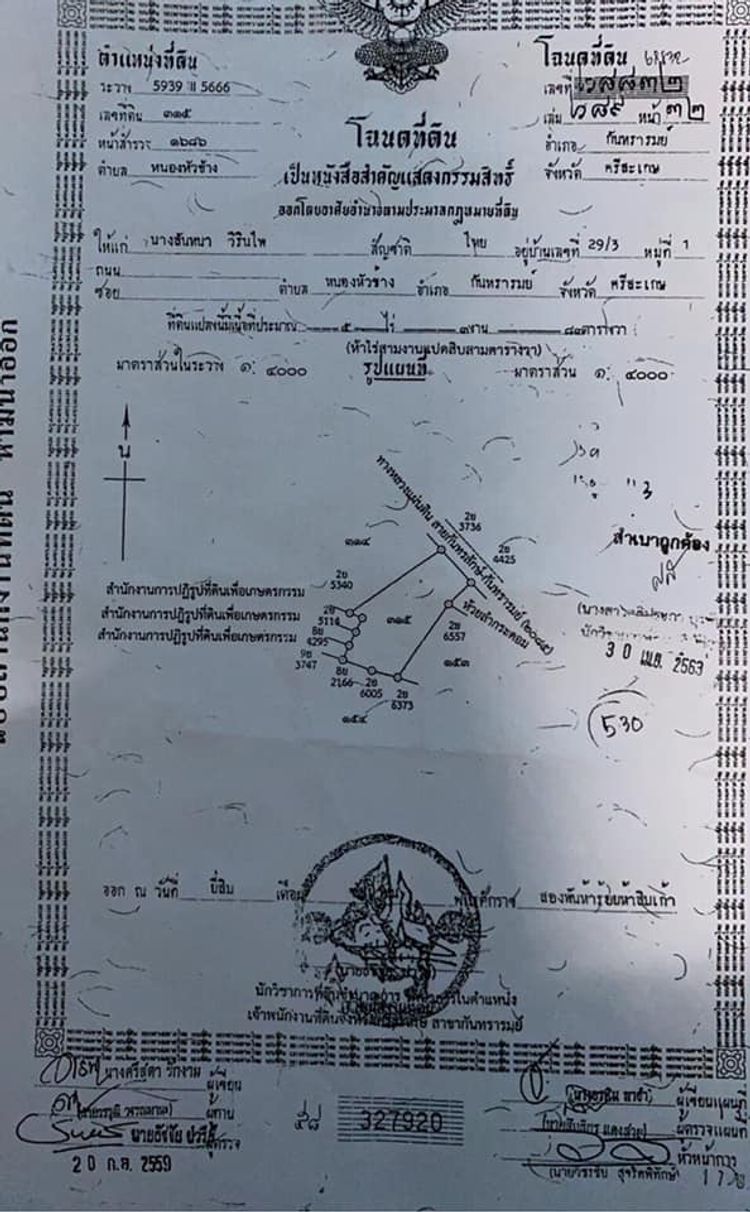 ตำแหน่งที่ดิน
ระวาง 5939 II 5666
เลขที่ดิน ๓๑๕
หน้าสำรวจ ๑๖๘๖
ตำบล หนองหัวช้าง
โฉนดที่ดิน
เลขที่ ๖๘๘๓๒
เล่ม ๖๘๙ หน้า ๓๒
อำเภอ กันทรารมย์
จังหวัด ศรีสะเกษ
โฉนดที่ดิน
เป็นหนังสือสำคัญแสดงกรรมสิทธิ์
ออกโดยอาศัยอำนาจตามประมวลกฎหมายที่ดิน
ให้แก่ สัญชาติ ไทย อยู่บ้านเลขที่ 29/3 หมู่ที่ 1
ถนน
ซอย ตำบล หนองหัวช้าง อำเภอ กันทรารมย์ จังหวัด ศรีสะเกษ
ที่ดินแปลงนี้มีเนื้อที่ประมาณ ๕ ไร่ ๓ งาน ๘๓ ตารางวา
(ห้าไร่สามงานแปดสิบสามตารางวา)
มาตราส่วนในระวาง ๑: ๔๐๐๐ รูปแผนที่ มาตราส่วน ๑: ๔๐๐๐
น
ทางหลวงแผ่นดิน สายกันทรลักษ์-กันทรารมย์ (๒๐๘๕)
2ย
3736
2ย
4425
๓๑๔
2ย
5340
สำนักงานการปฏิรูปที่ดินเพื่อเกษตรกรรม
สำนักงานการปฏิรูปที่ดินเพื่อเกษตรกรรม
สำนักงานการปฏิรูปที่ดินเพื่อเกษตรกรรม
2ย
5114
8ย
4295
9ย
3747
8ย
2166
2ย
6005
2ย
6373
๓๑๕
2ย
6557
ห้วยลำกระดอม
๑๕๓
๑๕๔
สำเนาถูกต้อง
3 0 เม.ย. 2563
530
ออก ณ วันที่ ยี่สิบ เดือน พุทธศักราช สองพันห้าร้อยห้าสิบเก้า
เจ้าพนักงานที่ดินจังหวัดศรีสะเกษ สาขากันทรารมย์
นางศรีสุดา รักงาม ผู้เขียน
ผู้ทาน
ผู้ตรวจ
2 0 ก.ย. 2559
๕๘ 327920
ผู้เขียนแผนที่
ผู้ตรวจแผนที่
หัวหน้าการ